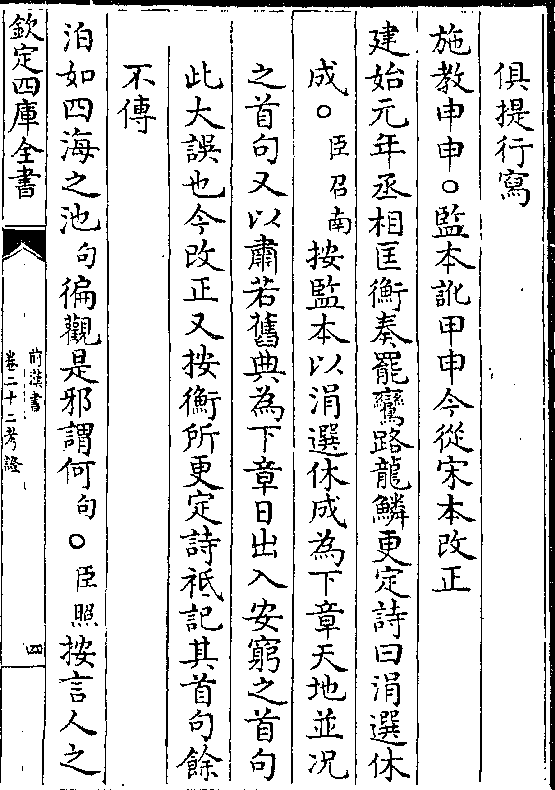 俱提行寫
施教申申○監本訛甲申今從宋本改正
建始元年丞相匡衡奏罷鸞路龍鱗更定詩曰涓選休
成○臣召南按監本以涓選休成為下章天地並況
之首句又以肅若舊典為下章日出入安窮之首句
此大誤也今改正又按衡所更定詩祇記其首句餘
不傳
泊如四海之池句徧觀是邪謂何句○臣照按言人之
欽定四庫全書
前漢書
卷二十二考證
四